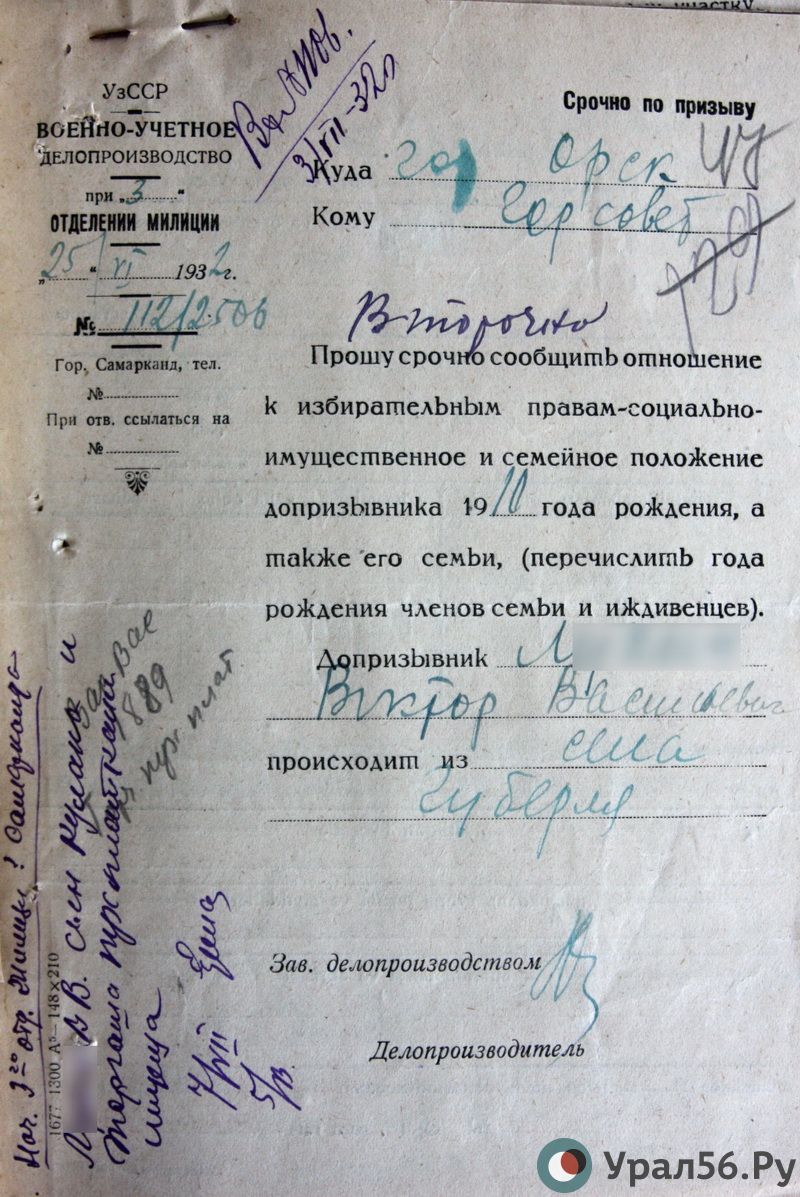 участку
УзССР
ВОЕННО-УЧЕТНОЕ
ДЕЛОПРОИЗВОДСТВО
при „3“
ОТДЕЛЕНИИ МИЛИЦИИ
„25“ VI 1932 г.
№ 112/2506
Гор. Самарканд, тел.
№
При отв. ссылаться на
№
3/VII-32
Срочно по призыву
Куда гор Орск
Кому Горсовет
Вторично
Прошу срочно сообщить отношение
к избирательным правам-социально-
имущественное и семейное положение
допризывника 1910 года рождения, а
также его семьи, (перечислить года
рождения членов семьи и иждивенцев).
Допризывник Л
Виктор Васильевич
происходит из села
Губерля
Зав. делопроизводством
Делопроизводитель
Нач. 3го отд. Милиции г Самарканда
1677 1300 А5—148×210
Л В В. сын кулака и
торгаша
889
7/VII
Урал56.Ру